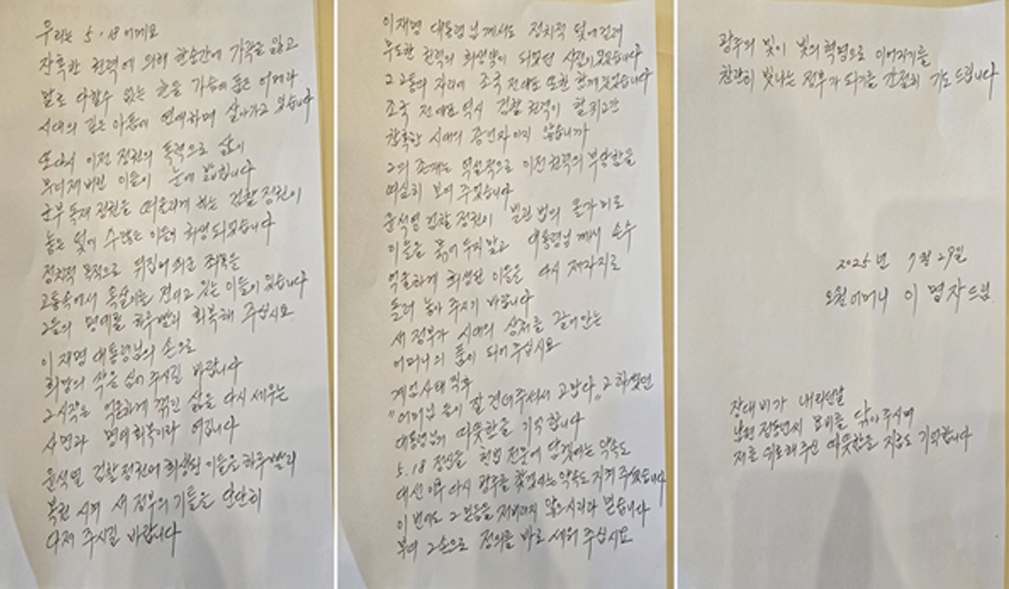 우리는 5·18 어머니요
잔혹한 권력에 의해 한순간에 가족을 잃고
말로 다할수 없는 한을 가슴에 품은 어머니라
시대의 깊은 아픔에 연대하며 살아가고 있습니다
또다시 이전 정권의 폭력으로 삶이
무너져버린 이들이 눈에 밟힙니다
군부독재 정권을 떠올리게 하는 검찰 정권이
놓은 덫에 수많은 이들이 희생되었습니다
정치적 목적으로 뒤집어 씌운 죄목을
고통속에서 옥살이를 견디고 있는 이들이 있습니다
그들의 명예를 하루빨리 회복해 주십시요
이재명 대통령님의 손으로
희망의 싹을 심어 주시길 바랍니다
그시작은 억울하게 꺾인 삶을 다시 세우는
사면과 명예회복이라 여깁니다
윤석열 검찰정권에 희생된 이들을 하루빨리
복권 시켜 새 정부의 기틀을 단단히
다져 주시길 바랍니다
이재명 대통령님께서도 정치적 덫에 걸려
무도한 권력의 희생양이 되었던 시절이 있었습니다
그 고통의 자리에 조국 전대표 또한 함께 있었습니다
조국 전대표 역시 검찰 권력이 할퀴고간
참혹한 시대의 증언자이지 않습니까
그의 존재는 역설적으로 이전 권력의 부당함을
여실히 보여 주었습니다
윤석열 검찰 정권이 벌린 법의 올가미로
이들을 묶어 두지말고 대통령님께서 손수
억울하게 희생된 이들을 다시 제자리로
돌려 놓아 주시기 바랍니다
새 정부가 시대의 상처를 끌어안는
어머니의 품이 되어 주십시요
계엄사태 직후
"어머님 들이 잘 견뎌주셔서 고맙다" 고 하셨던
대통령님의 따뜻함을 기억합니다
5.18 정신을 헌법 전문에 담겠다는 약속도
대선 이후 다시 광주를 찾겠다는 약속도 지켜 주셨습니다
이번에도 그 믿음을 저버리지 않으시리라 믿습니다
부디 그손으로 정의를 바로 세워 주십시요
광주의 빛이 빛의 혁명으로 이어지기를
찬란히 빛나는 정부가 되기를 간절히 기도 드립니다
2025년 7월 29일
오월어머니 이 명자드림
장대비가 내리던날
남편 정동년씨 묘비를 닦아주시며
저를 위로해주신 따뜻함을 지금도 기억합니다